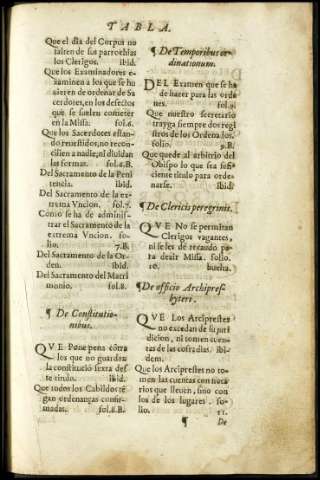 TABLA.
Que el dia del Corpus no
salren de sus parrochias
los Clerigos. ibid.
Que los Examinadores e-
xaminen a los que se ha
asren de ordenar de Sa
cerdotes, en los defectos
que se suelen cometer
en la Missa. fol.4.
Que los Sacerdotes estan-
do reuestidos, no recon-
cilien a nadie, ni diuidan
las formas. fol.6.B.
Del Sacramento de la Peni
tencia. ibid.
Del Sacramento de la ex-
trema Vncion. fol.7.
Como se ha de adminis-
trar el Sacramento de la
extrema Vncion. fo-
lio. 7.B.
Del Sacramento de la Or-
den. ibid.
Del Sacramento del Matri
monio. fol.8.
¶ De Constitutio-
nibus.
QVE Pone pena cōtra
los que no guardan
la constitució sexta des
te titulo. ibid.
Que todos los Cabildos tē-
gan ordenanças confir-
madas. fol.8.B.
¶ De Temporibus or-
dinationum.
DEL Examen que se ha
de hazer para las orde
nes. fol.9.
Que nuestro secretario
trayga siempre dos regi
stros de los Ordenados.
folio. 9.B.
Que quede al arbitrio del
Obispo lo que sea sufi-
ciente titulo para orde-
narse. ibid.
¶ De Clericis peregrinis.
QVE No se permitan
Clerigos vagantes,
ni se les dè recaudo pa-
ra dezir Missa. folio.
10. buelta.
¶ De officio Archipres-
byteri.
QVE Los Arciprestes
no excedan de su juri
dicion, ni tomen cuen-
tas de las cofradias. ibi-
dem.
Que los Arciprestes no to-
men las cuentas con nota
rios que lleuen, sino con
los de los lugares. fo-
lio. 11.
¶ De